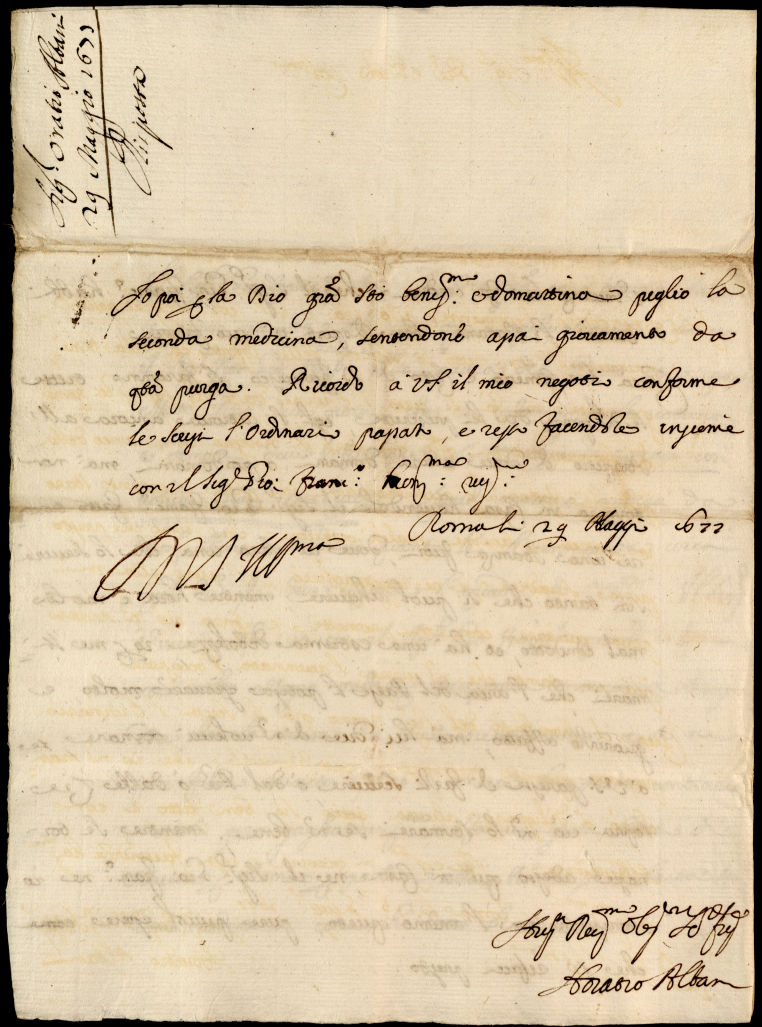 Sig.r Oratio Albani
29 Maggio 1677
Risposta
Io poi la Dio grã stò benis.mo e domattina piglio la
seconda medicina, sentendone assai giovamento da
qsta purga. Ricordo à VS il mio negotio conforme
le scrissi l'Ordinario passato, e resto facendole insieme
con il Sig.r Gio: Franc.o
Roma li 29 Maggio 1677
VS Ill.ma
Horatio Albani